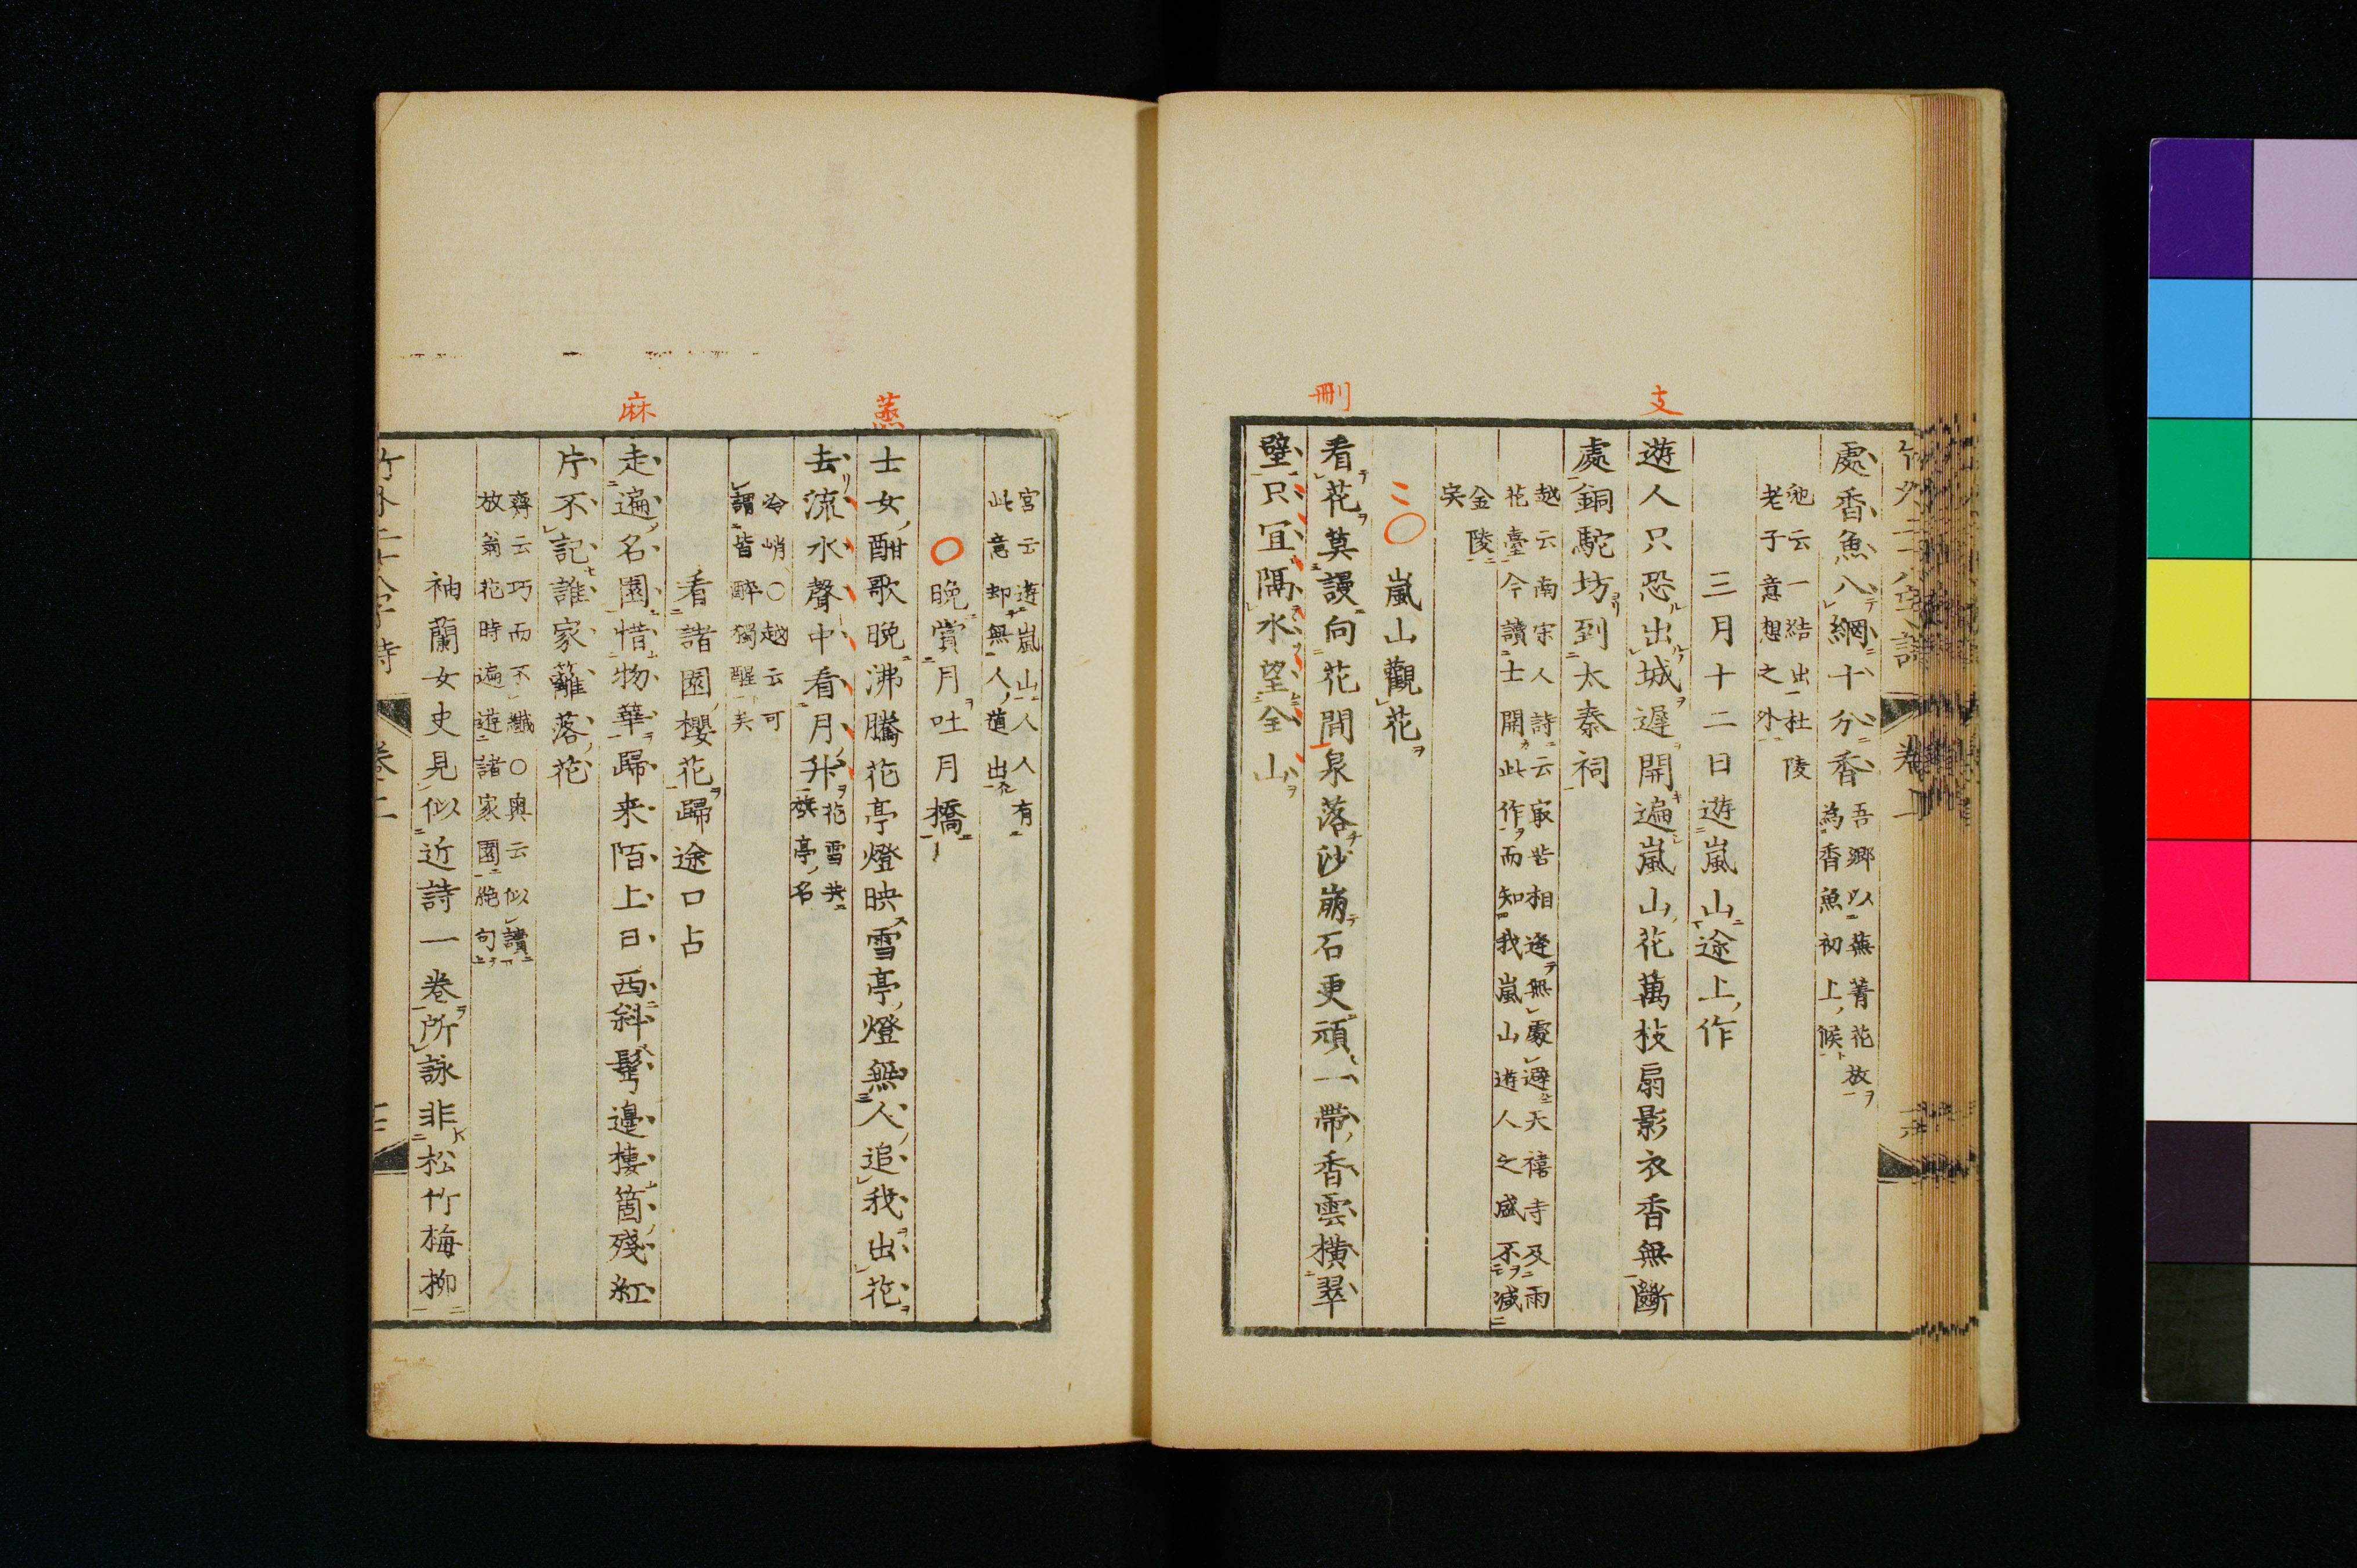 支
刪
處香魚入網十分香
吾鄉以蕪菁花放
為香魚初上候
池云一結出杜陵
老子意想之外
三月十二日遊嵐山途上作
遊人只恐出城遲開遍嵐山花萬枝扇影衣香無斷
處銅駝坊到太秦祠
越云南宋人詩云寂苦相逢無處避天禧寺及雨
花臺今讀士開此作而知我嵐山遊人之盛不減
金陵
矣
二〇嵐山觀花
看花莫謾向花間泉落沙崩石更頑一帶香雲橫翠
壁只宜隔水望全山
蒸
麻
宮云遊嵐山人人有
此意却無人道出
〇晚賞月吐月橋
士女酣歌晚沸騰花亭燈映雪亭燈無人追我出花
去流水聲中看月升
花雪共
旗亭名
冷峭〇越云可
謂皆醉獨醒矣
看諸園櫻花歸途口占
走遍名園惜物華歸来陌上日西斜髩邊樓箇殘紅
片不記誰家籬落花
齊云巧而不纖〇奧云似讀
放翁花時遍遊諸家園絶句
袖蘭女史見似近詩一卷所詠非松竹梅柳